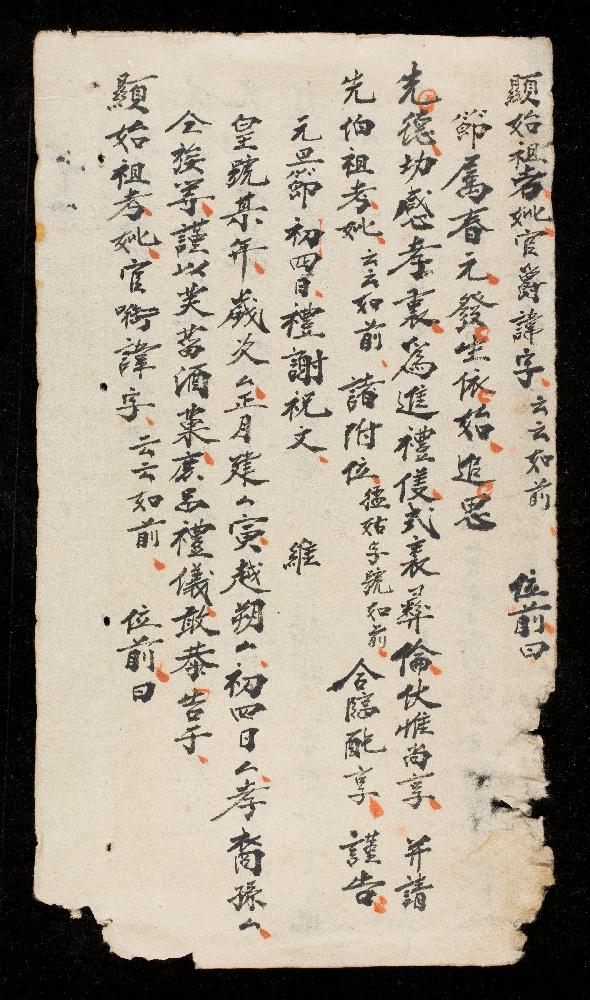 顯始祖考妣官爵諱字云云如前 位前曰
節屬春元發生依始追思
先德功感孝裏為進禮儀式裏彞倫伏惟尚享 并請
先伯祖考妣云云如前 諸附位猛姑字號如前 合臨配享 謹告
元旦節初四日禮謝祝文 維
皇號某年歲次𠆢正月建𠆢寅越朔𠆢初四日𠆢孝裔孫𠆢
仝族等謹以芙茵酒菓庶品禮儀敢恭告于
顯始祖考妣官啣諱字云云如前 位前曰